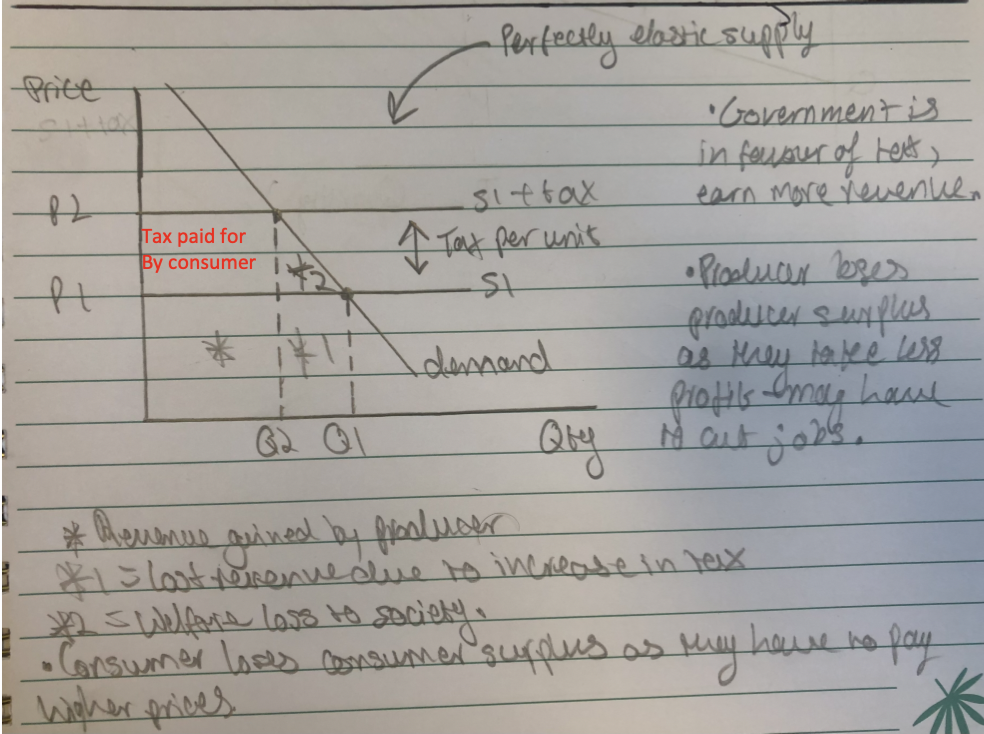 Perfectly elastic supply
Price
S1+tax
P2
S1+tax
Tax paid for
By consumer
Tax per unit
*2
P1
S1
*
*1
demand
Q2
Q1
Qty
•Government is
in favour of tax,
earn more revenue.
•Producer loses
producer surplus
as they take less
profits - may have
to cut jobs.
* Revenue gained by producer
*1 = lost revenue due to increase in tax
*2 = Welfare loss to society.
•Consumer loses consumer surplus as they have to pay
higher prices